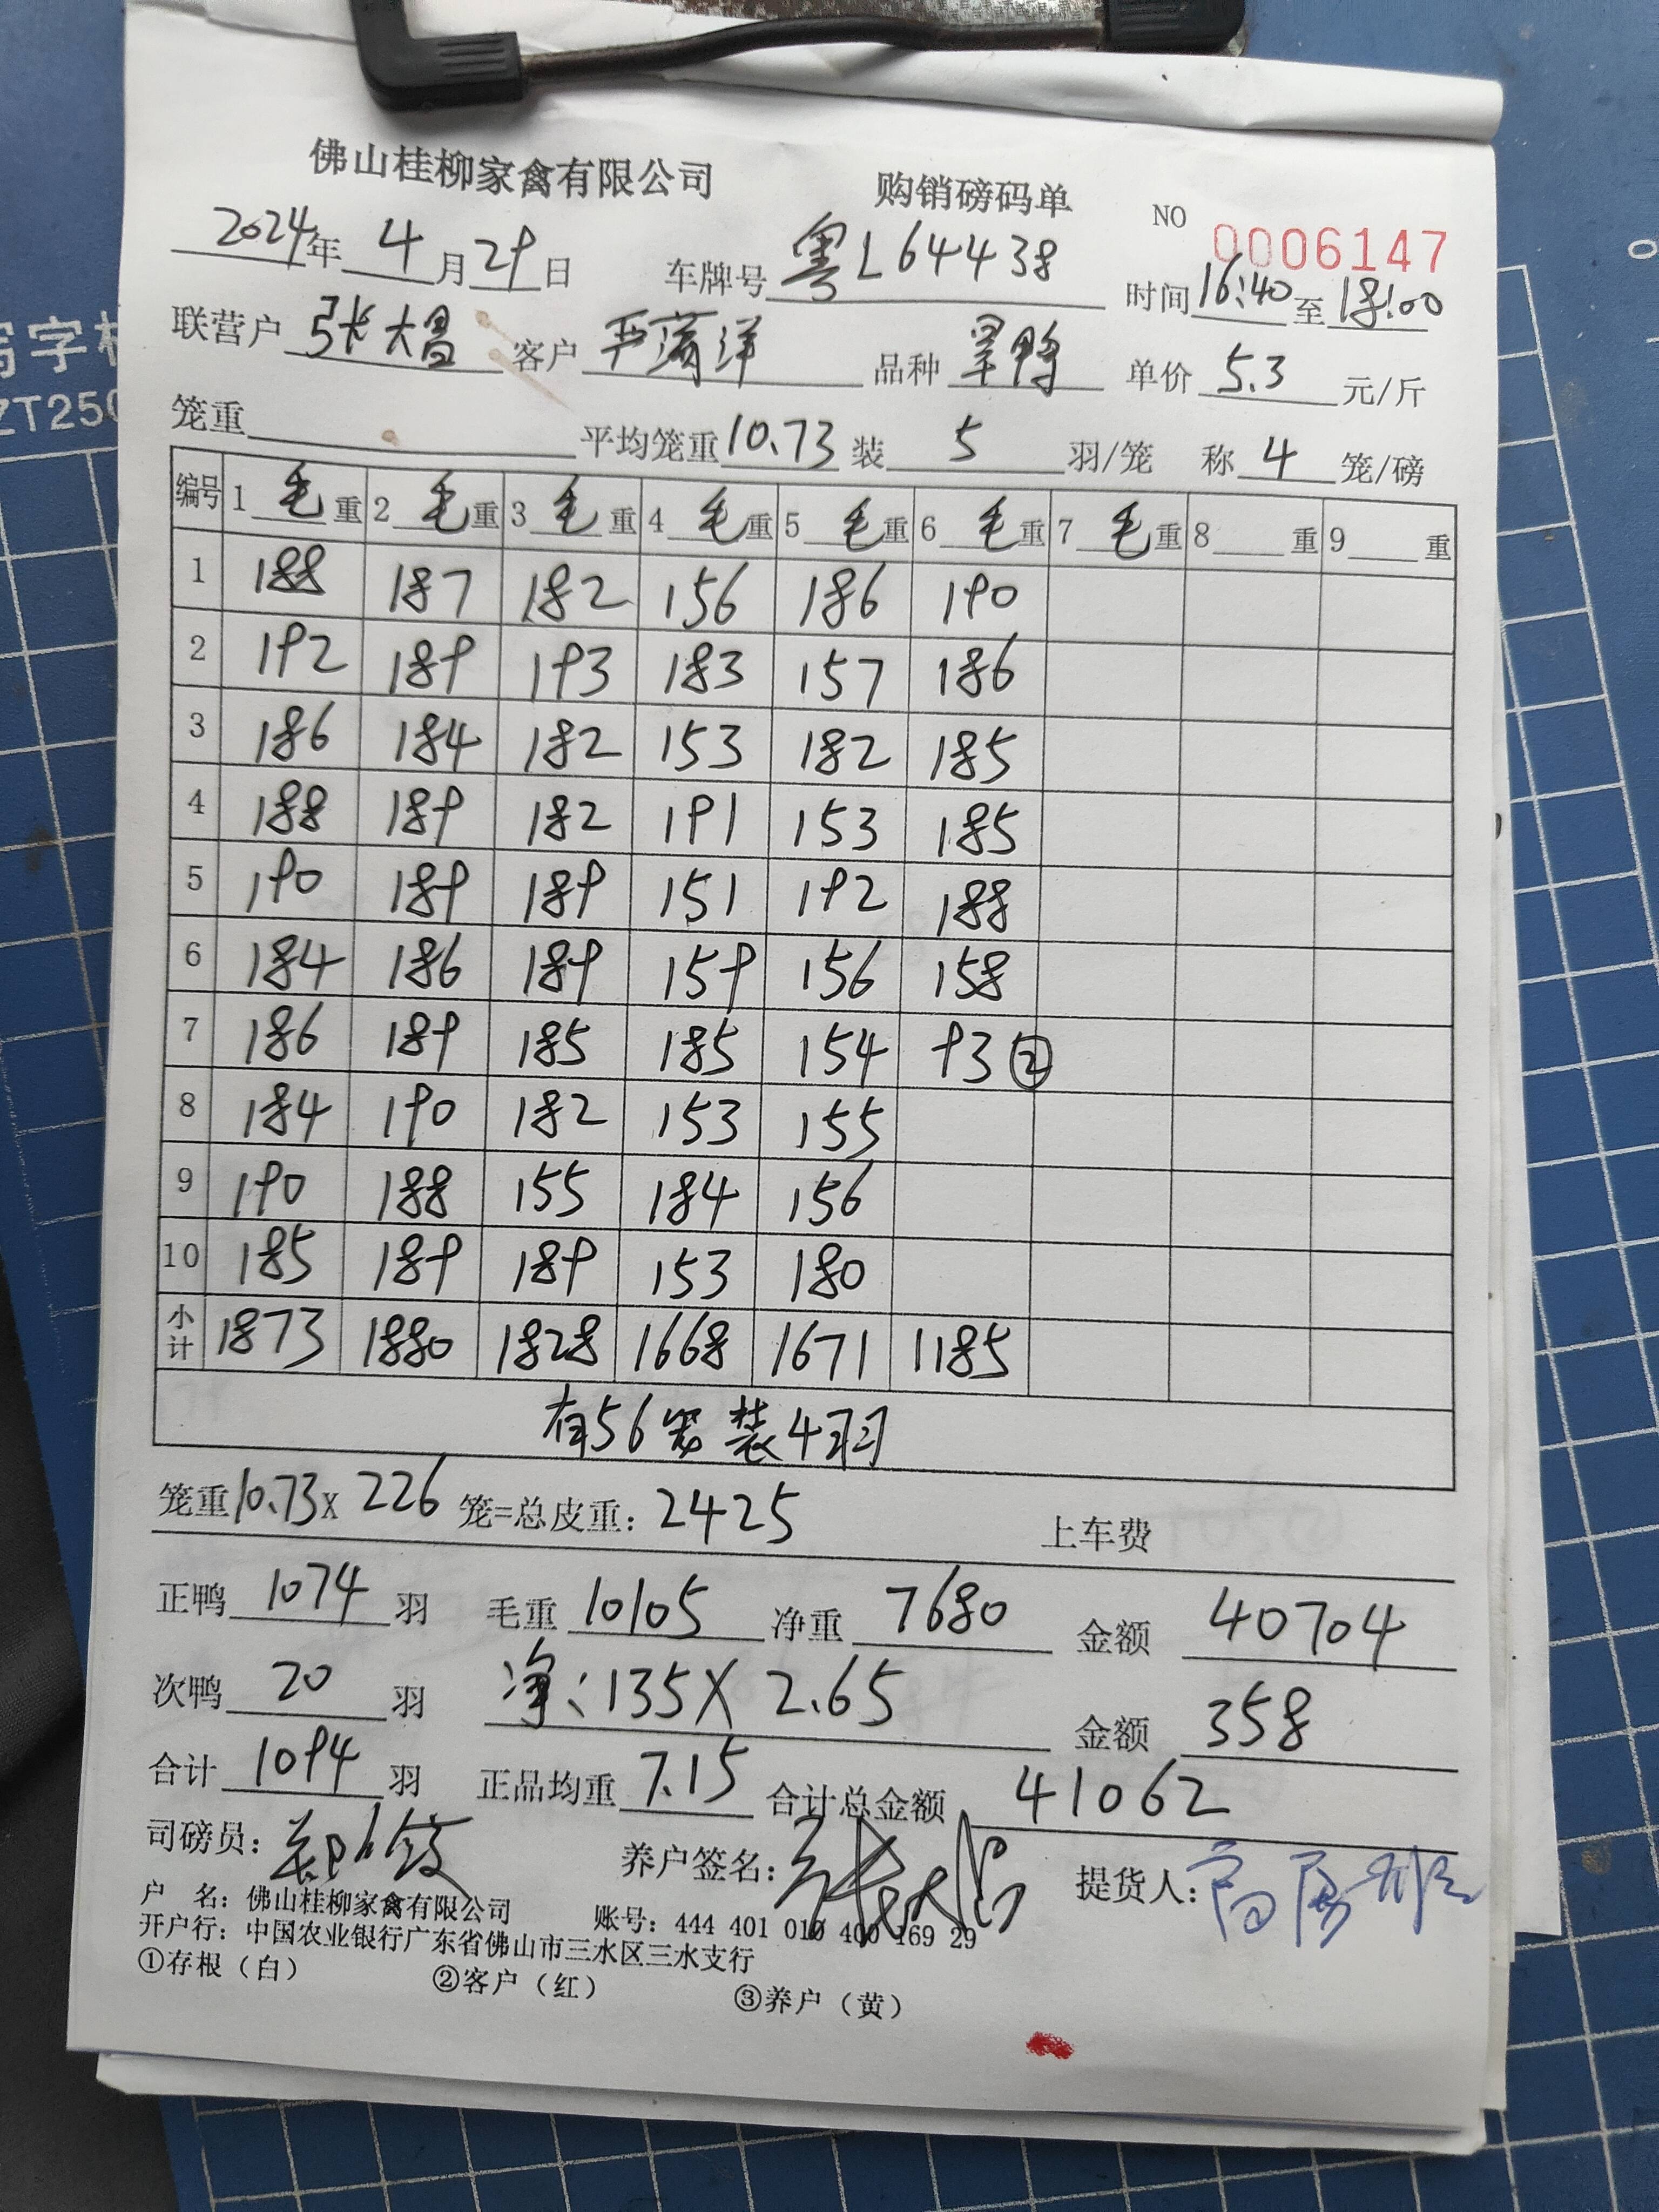 佛山桂柳家禽有限公司 购销磅码单 NO 0006147
2024年 4月29日 车牌号 粤L64438 时间16:40至18:00
联营户 张大昌 客户 严蒲洋 品种 单价 5.3 元/斤
笼重 平均笼重10.73 装 5 羽/笼 称 4 笼/磅
编号 1 毛 重 2 毛 重 3 毛 重 4 毛 重 5 毛 重 6 毛 重 7 毛 重 8 重 9 重
1 188 187 182 156 186 190
2 192 189 193 183 157 186
3 186 184 182 153 182 185
4 188 189 182 191 153 185
5 190 189 189 151 192 188
6 184 186 189 159 156 158
7 186 189 185 185 154 93②
8 184 190 182 153 155
9 190 188 155 184 156
10 185 189 189 153 180
小计 1873 1880 1828 1668 1671 1185
有56笼装4羽
笼重10.73x 226 笼=总皮重: 2425 上车费
正鸭 1074 羽 毛重 10105 净重 7680 金额 40704
次鸭 20 羽 净: 135X 2.65 金额 358
合计 1094 羽 正品均重 7.15 合计总金额 41062
司磅员: 养户签名: 提货人:
户 名: 佛山桂柳家禽有限公司 账号: 444 401 010 400 169 29
开户行: 中国农业银行广东省佛山市三水区三水支行
①存根（白） ②客户（红） ③养户（黄）